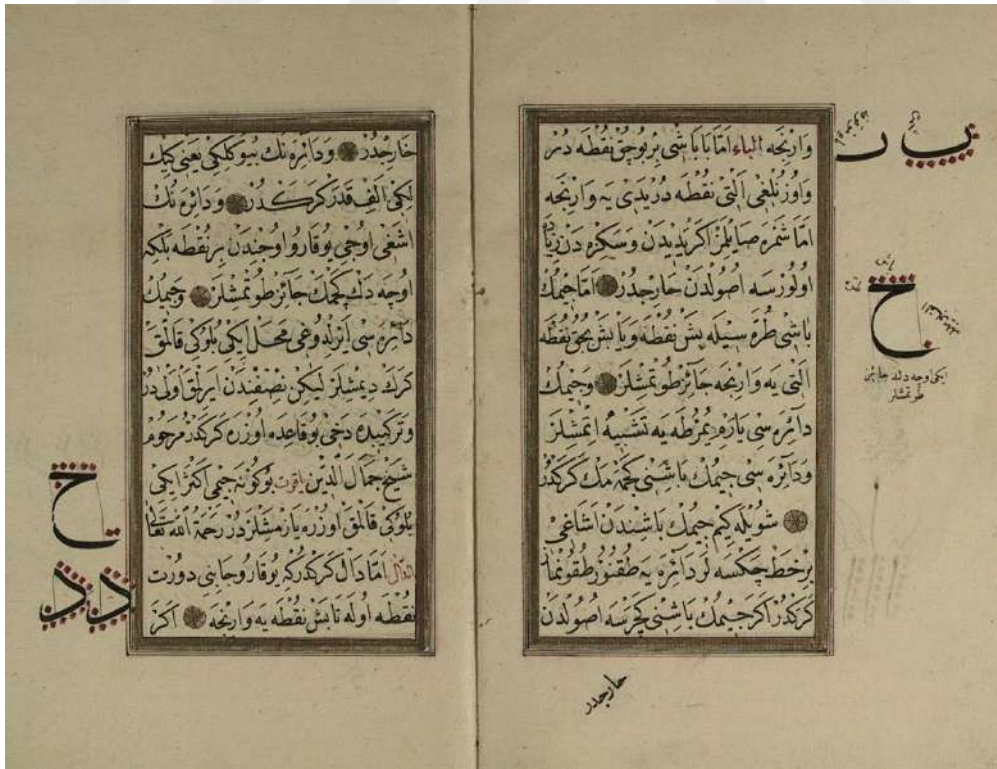 وارنجه الباء امّا با باشى بر بوچق نقطه در
واوزنلغى التى نقطه در يدى يه وارنجه
امّا شمره صايلمز اكر يديدن وسكزدن زياده
اولورسه اصولدن خارجدر امّا جيمك
باشى طره سيله بش نقطه ويا بش بچق نقطه
التى يه وارنجه جائز طوتمشلر وجيمك
دائره سى ياره يمرطه يه تشبيه اتمشلر
ودائره سى جيمك باشنى كچمه مك كركدر
شويله كيم جيمك باشندن اشاغى
بر خط چكسه لر دائره يه طقنور طقونماق
كركدر اكر جيمك باشنى كچرسه اصولدن
خارجدر
ايكى اوچه دك جائز
طوتمشلر
خارجدر ودائره نك بيوكلكى يعنى كيك
لكى الف قدر كركدر ودائره نك
اشغى اوجى يوقارو اوجندن بر نقطه بلكه
اوچه دك كچمك جائز طوتمشلر وجيمك
دائره سى ايرلدوغى محل ايكى بلوكى قالمق
كرك ديمشلر ليكن نصفندن ايرلق اولى در
وتركيبده دخى بو قاعده اوزره كركدر مرحوم
شيخ جمال الدين ياقوت بو كونه جيمى اكثر ايكى
بلوكى قالمق اوزره يازمشلردر رحمة الله تعالى
الدال امّا دال كركدر كه يوقارو جانبى دورت
نقطه اوله تا بش نقطه يه وارنجه اكر